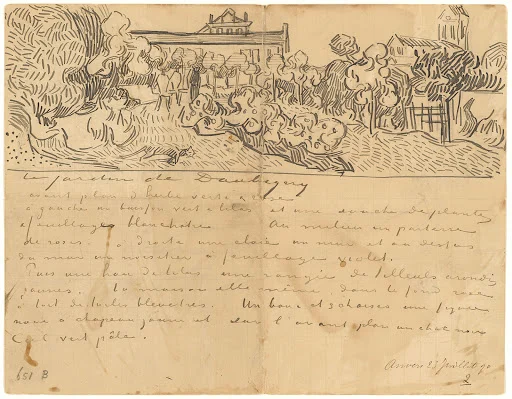 Le jardin de Daubigny
avant plan d'herbe verte & rose
à gauche un buisson vert & lilas et une souche de plantes
à feuillages blanchatres. Au milieu un parterre
de roses. à droite une claie un mur et au dessus
du mur un noisetier à feuillage violet.
Puis une haie de lilas une rangée de tilleuls arrondis
jaunes. La maison elle même dans le fond rose
à toit de tuiles bleuatres. Un banc et 3 chaises une figure
noire à chapeau jaune et sur l'avant plan un chat noir
Ciel vert pâle.
Auvers 23 Juillet 90
2
651 B